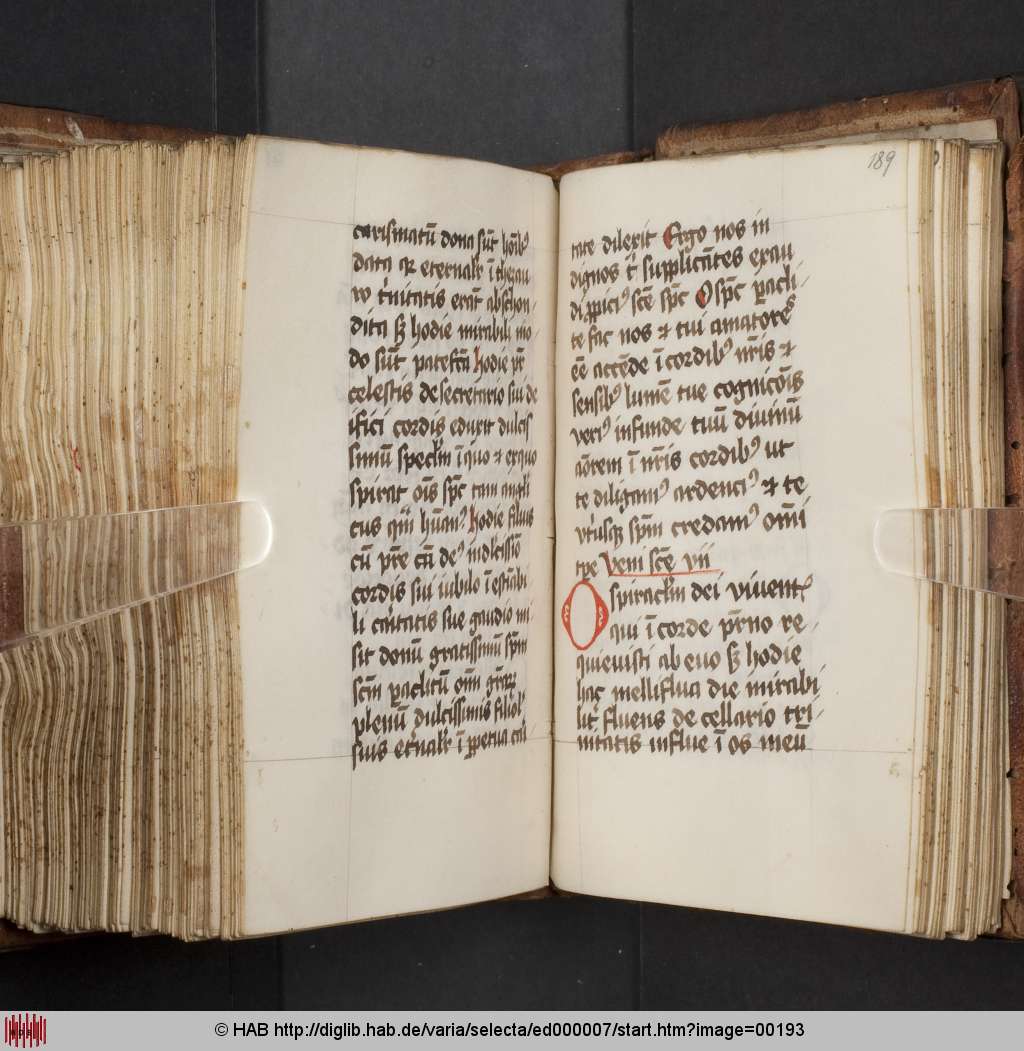 carismatū dona sūt hōibꝰ
data qꝫ eternalr̄ ī thezau
ro tͥnitatis erāt abschon-
dita sꝫ hodie mirabili mo-
do sūt patefc̄a hodie pr̄
celestis de secretario sui de
ifici cordis eduxit dulcis
simū speclm̄ ī quo ⁊ ex quo
spirat oīs spc̄ tam angli
cus qm̄ hūanꝰ hodie filius
cū pr̄e cū deꝰ indlcissīo
cordis sui iubilo ī estīabi-
li caritatis sue gaudio mi-
sit donū gratissimū spm̄
scm̄ paclitū om̄i grāꝝ
plenū dulcissimis filiol
suis et̄nalr̄ ī ꝑpetua cari
189
tate dilexit Ergo nos in
dignos tͥ supplicātes exau-
di ꝓpiciꝰ sc̄e spc̄ O spc̄ paclī-
te fac nos ⁊ tui amatores
eē accēde ī cordibꝰ nr̄is ⁊
sensibꝰ lumē tue cognicōis
veriꝰ infunde tuū diuinū
aōrem ī nr̄is cordibꝰ ut
te diligamꝰ ardenciꝰ ⁊ te
vtͥusqꝫ spm̄ credamꝰ om̄i
tꝑe Veni sc̄e vii
O spiraclm̄ dei viuentꝭ
qui ī corde pr̄no re-
quieuisti ab euo sꝫ hodie
hac melliflua die mirabi-
lit̄ fluens de cellario tri-
nitatis influe ī os meū
© HAB http://diglib.hab.de/varia/selecta/ed000007/start.htm?image=00193